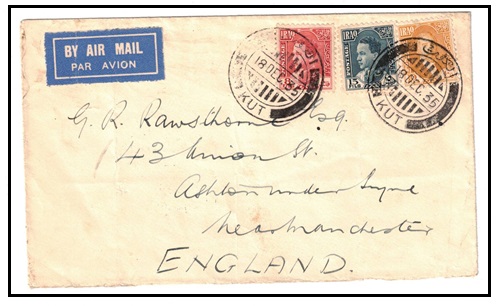 BY AIR MAIL
PAR AVION
IRAQ
POSTAGE
IRAQ
POSTAGE
IRAQ
18 DEC. 35
KUT
18 DEC. 35
KUT
G. R. Rawsthorne Esq.
143 Union St.
Ashton under Lyne
near Manchester
ENGLAND.